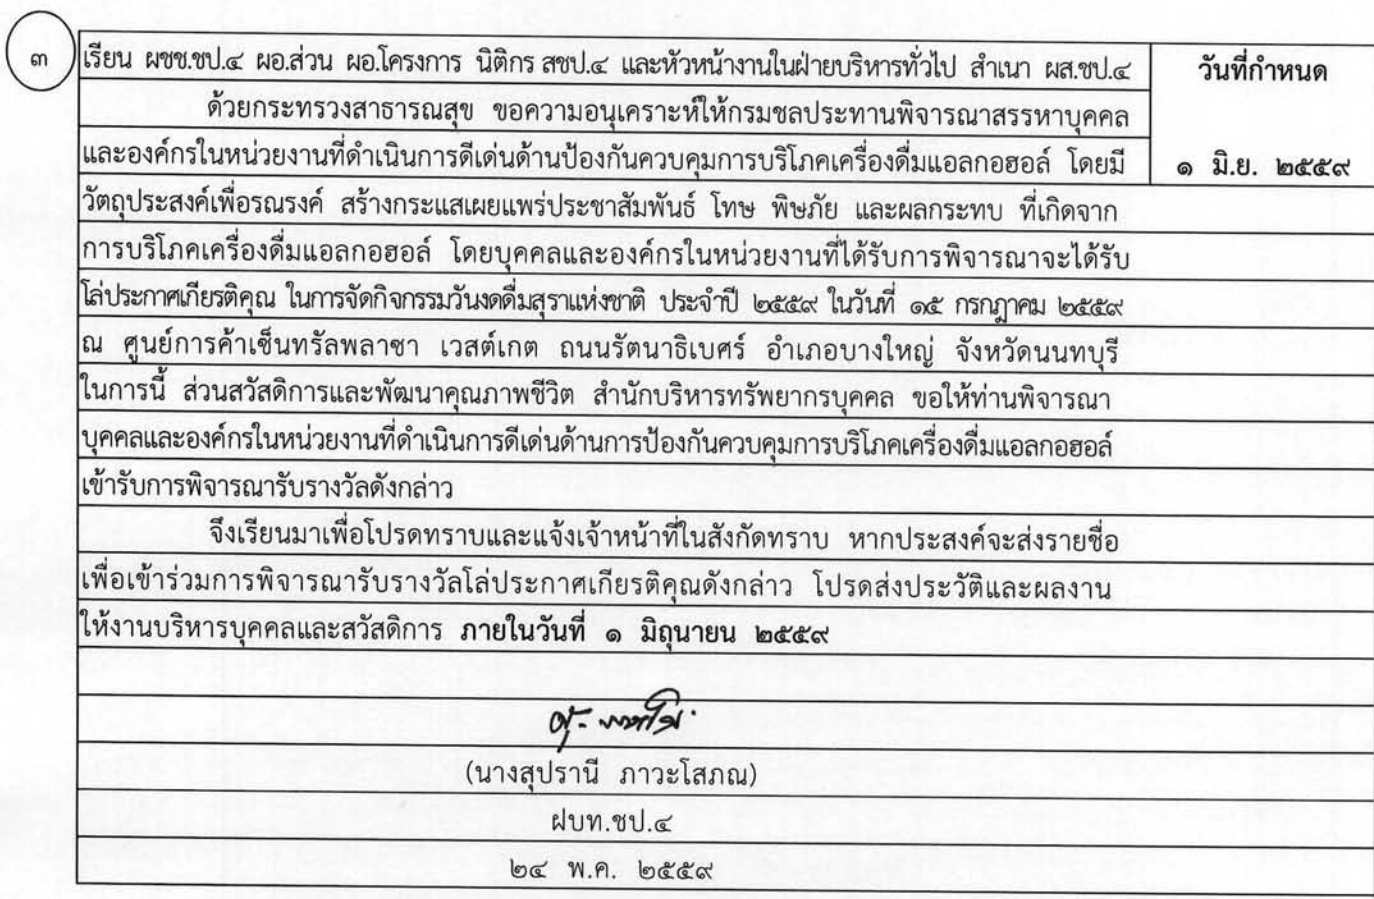 ๓
เรียน ผชช.ชป.๔ ผอ.ส่วน ผอ.โครงการ นิติกร สชป.๔ และหัวหน้างานในฝ่ายบริหารทั่วไป สำเนา ผส.ชป.๔
วันที่กำหนด
ด้วยกระทรวงสาธารณสุข ขอความอนุเคราะห์ให้กรมชลประทานพิจารณาสรรหาบุคคล
และองค์กรในหน่วยงานที่ดำเนินการดีเด่นด้านป้องกันควบคุมการบริโภคเครื่องดื่มแอลกอฮอล์ โดยมี
๑ มิ.ย. ๒๕๕๙
วัตถุประสงค์เพื่อรณรงค์ สร้างกระแสเผยแพร่ประชาสัมพันธ์ โทษ พิษภัย และผลกระทบ ที่เกิดจาก
การบริโภคเครื่องดื่มแอลกอฮอล์ โดยบุคคลและองค์กรในหน่วยงานที่ได้รับการพิจารณาจะได้รับ
โล่ประกาศเกียรติคุณ ในการจัดกิจกรรมวันงดดื่มสุราแห่งชาติ ประจำปี ๒๕๕๙ ในวันที่ ๑๕ กรกฎาคม ๒๕๕๙
ณ ศูนย์การค้าเซ็นทรัลพลาซา เวสต์เกต ถนนรัตนาธิเบศร์ อำเภอบางใหญ่ จังหวัดนนทบุรี
ในการนี้ ส่วนสวัสดิการและพัฒนาคุณภาพชีวิต สำนักบริหารทรัพยากรบุคคล ขอให้ท่านพิจารณา
บุคคลและองค์กรในหน่วยงานที่ดำเนินการดีเด่นด้านการป้องกันควบคุมการบริโภคเครื่องดื่มแอลกอฮอล์
เข้ารับการพิจารณารับรางวัลดังกล่าว
จึงเรียนมาเพื่อโปรดทราบและแจ้งเจ้าหน้าที่ในสังกัดทราบ หากประสงค์จะส่งรายชื่อ
เพื่อเข้าร่วมการพิจารณารับรางวัลโล่ประกาศเกียรติคุณดังกล่าว โปรดส่งประวัติและผลงาน
ให้งานบริหารบุคคลและสวัสดิการ ภายในวันที่ ๑ มิถุนายน ๒๕๕๙
(นางสุปรานี ภาวะโสภณ)
ฝบท.ชป.๔
๒๔ พ.ค. ๒๕๕๙